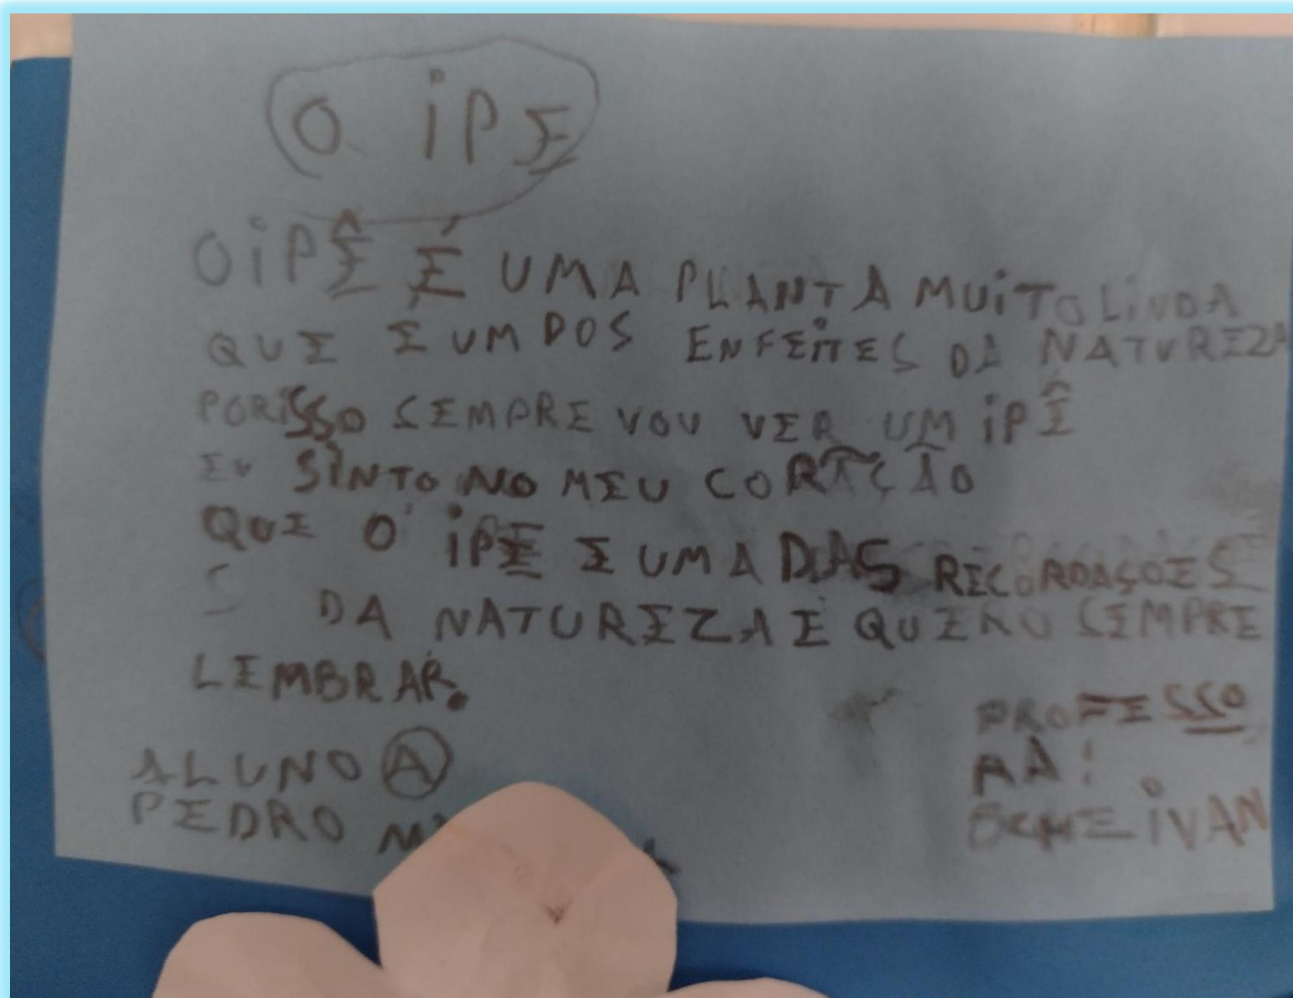 O IPE
OIPÊ É UMA PLANTA MUITO LINDA
QUE E UM DOS ENFEITES DA NATUREZA
PORISSO SEMPRE VOU VER UM IPÊ
EU SINTO NO MEU CORAÇÃO
QUE O IPE E UMA DAS RECORDAÇOES
S DA NATUREZA E QUERO SEMPRE
LEMBRAR.
ALUNO A
PEDRO
PROFESSO
RA:
IVAN